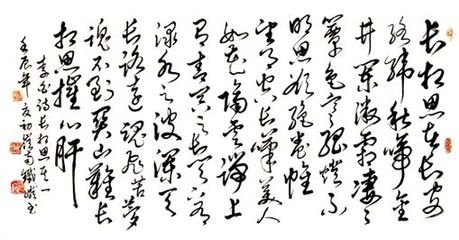 长相思在长安
络纬秋啼金
井阑微霜凄凄
簟色寒孤灯不
明思欲绝卷帷
望月空长叹美人
如花隔云端上
有青冥之长天下有
渌水之波澜天
长路远魂飞苦梦
魂不到关山难长
相思摧心肝
李白诗长相思其一
壬辰年夏初